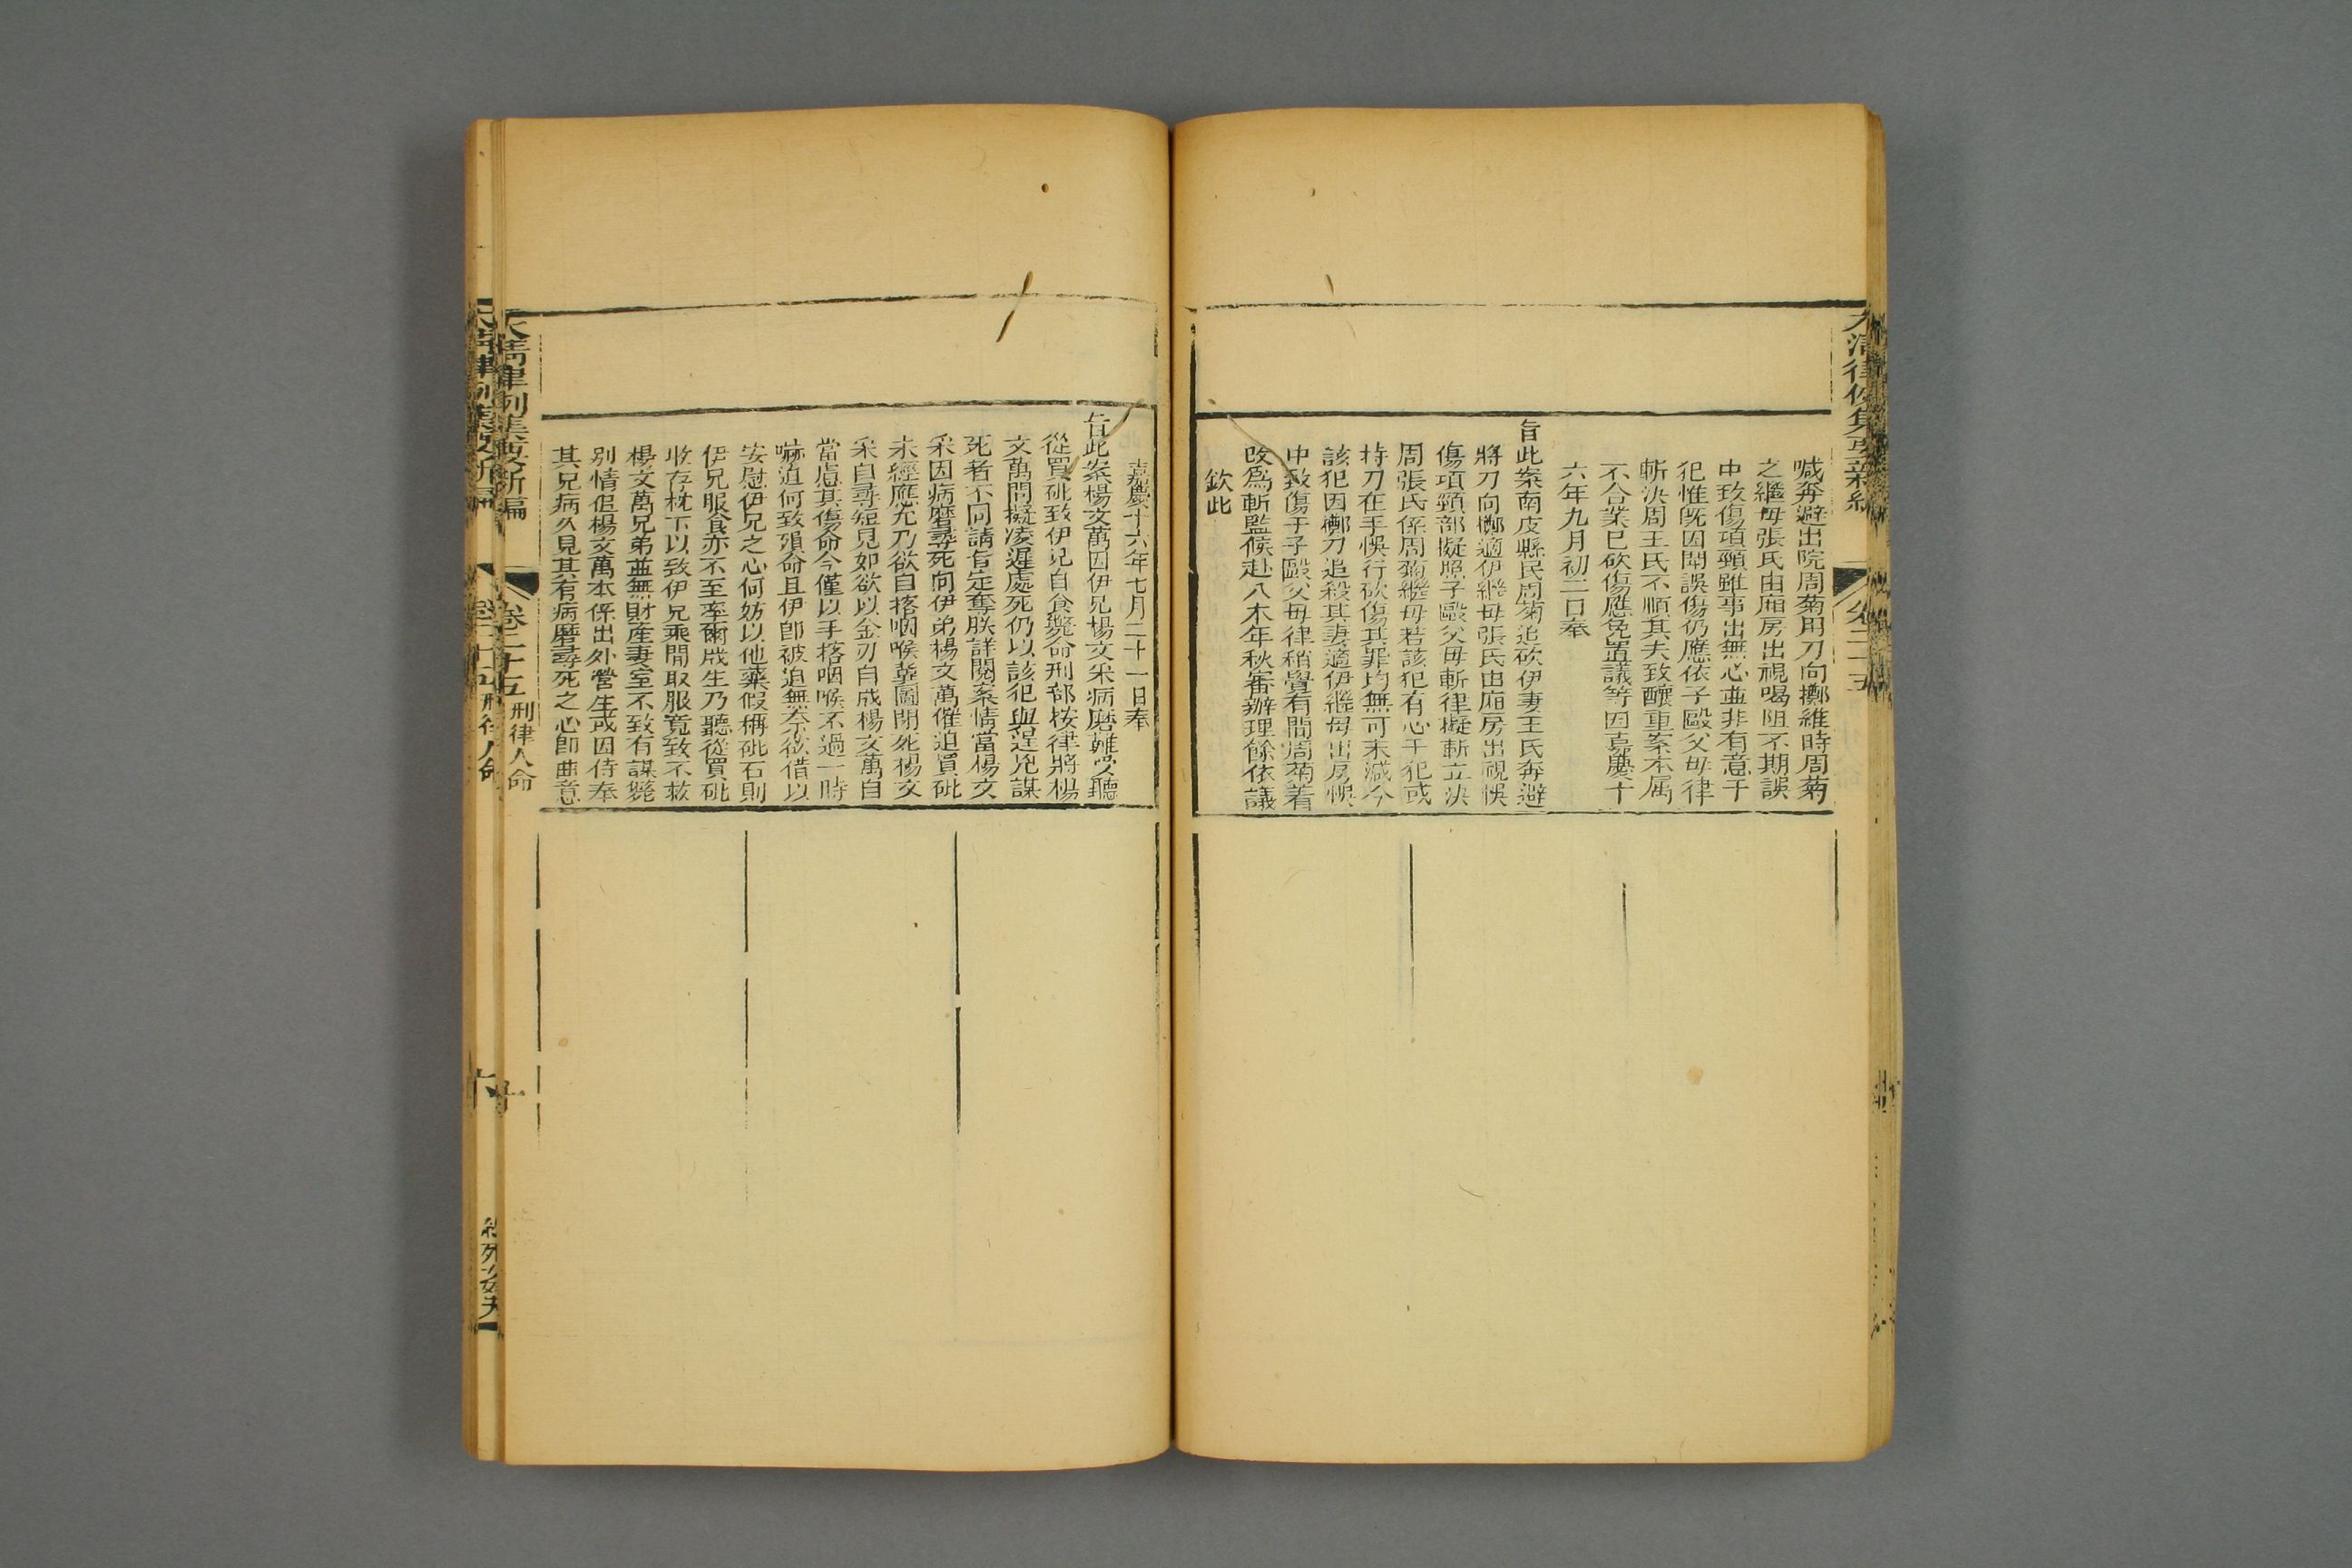 喊奔避出院周菊用刀向擲維時周菊
之繼母張氏由厢房出視喝阻不期誤
中致傷項頸雖事出無心並非有意干
犯惟旣因鬬誤傷仍應依子毆父母律
斬决周王氏不順其夫致釀重案本属
不合業已砍傷應免置議等因嘉慶十
六年九月初二日奉
旨此案南皮縣民周菊追砍伊妻王氏奔避
將刀向擲適伊繼母張氏由厢房出視悞
傷項頸部擬照子毆父母斬律擬斬立决
周張氏係周菊繼母若該犯有心干犯或
持刀在手悞行砍傷其罪均無可末減今
該犯因擲刀追殺其妻適伊繼母出房悞
中致傷于子毆父母律稍覺有間周菊着
改爲斬監候赴八本年秋審辦理餘依議
欽此
嘉慶十六年七月二十一日奉
旨此案楊文萬因伊兄楊文采病磨難受聽
從買砒致伊兄自食斃命刑部桉律將楊
文萬問擬凌遲處死仍以該犯與逞兇謀
死者不同請旨定奪朕詳閱案情當楊文
采因病磨尋死向伊弟楊文萬催迫買砒
未經應允乃欲自搭咽喉兾圖閉死楊文
采自尋短見如欲以金刃自戕楊文萬自
當慮其傷命今僅以手搭咽喉不過一時
嚇迫何致殞命且伊卽被迫無奈欲借以
安慰伊兄之心何妨以他藥假稱砒石則
伊兄服食亦不至率爾戕生乃聽從買砒
收存枕下以致伊兄乘閒取服竟致不救
楊文萬兄弟並無財產妻室不致有謀斃
别情但楊文萬本係出外營生或因侍奉
其兄病久見其有病磨尋死之心卽曲意
大清律例集要新編
卷二十五
刑律人命